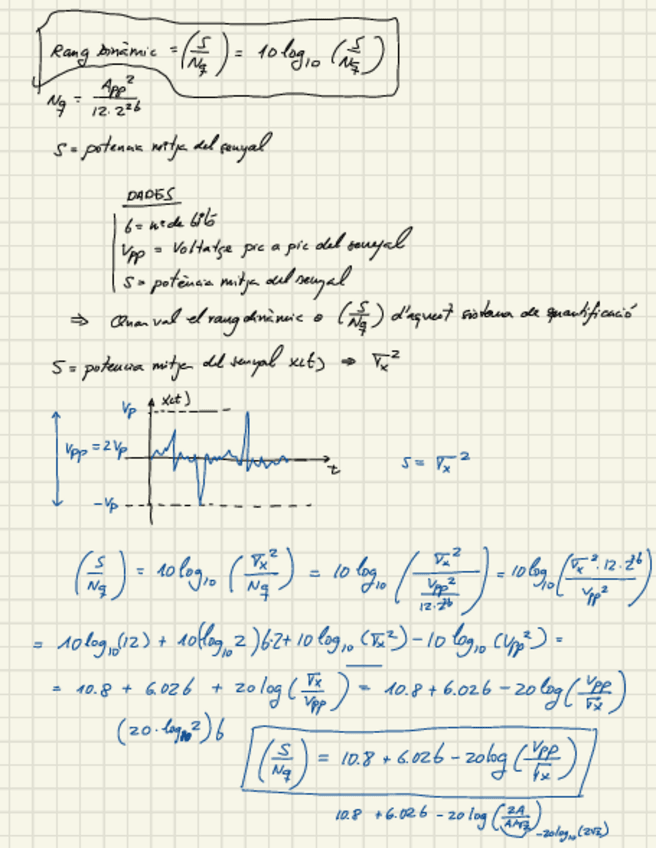 Rang Dinàmic = (S/Nq) = 10 log₁₀ (S/Nq)
Nq = App²/(12·2^2b)
S = potencia mitja del senyal
DADES
b = nº de bits
Vpp = Voltatge pic a pic del senyal
S = potència mitja del senyal
⇒ Quan val el rang dinàmic o (S/Nq) d'aquest sistema de quantificació
S = potencia mitja del senyal x(t) ⇒ σx²
x(t)
Vp
Vpp = 2Vp
t
S = σx²
-Vp
(S/Nq) = 10 log₁₀ (σx²/Nq) = 10 log₁₀ (σx²/(Vpp²/(12·2^2b))) = 10 log₁₀ (σx²·12·2^2b/Vpp²)
= 10 log₁₀(12) + 10(log₁₀ 2) b·2 + 10 log₁₀ (σx²) - 10 log₁₀ (Vpp²) =
= 10.8 + 6.02b + 20 log (σx/Vpp) = 10.8 + 6.02b - 20 log (Vpp/σx)
(20·log₁₀ 2) b
(S/Nq) = 10.8 + 6.02b - 20log (Vpp/σx)
10.8 + 6.02b - 20 log (2A/A/√2) -20log₁₀(2√2)